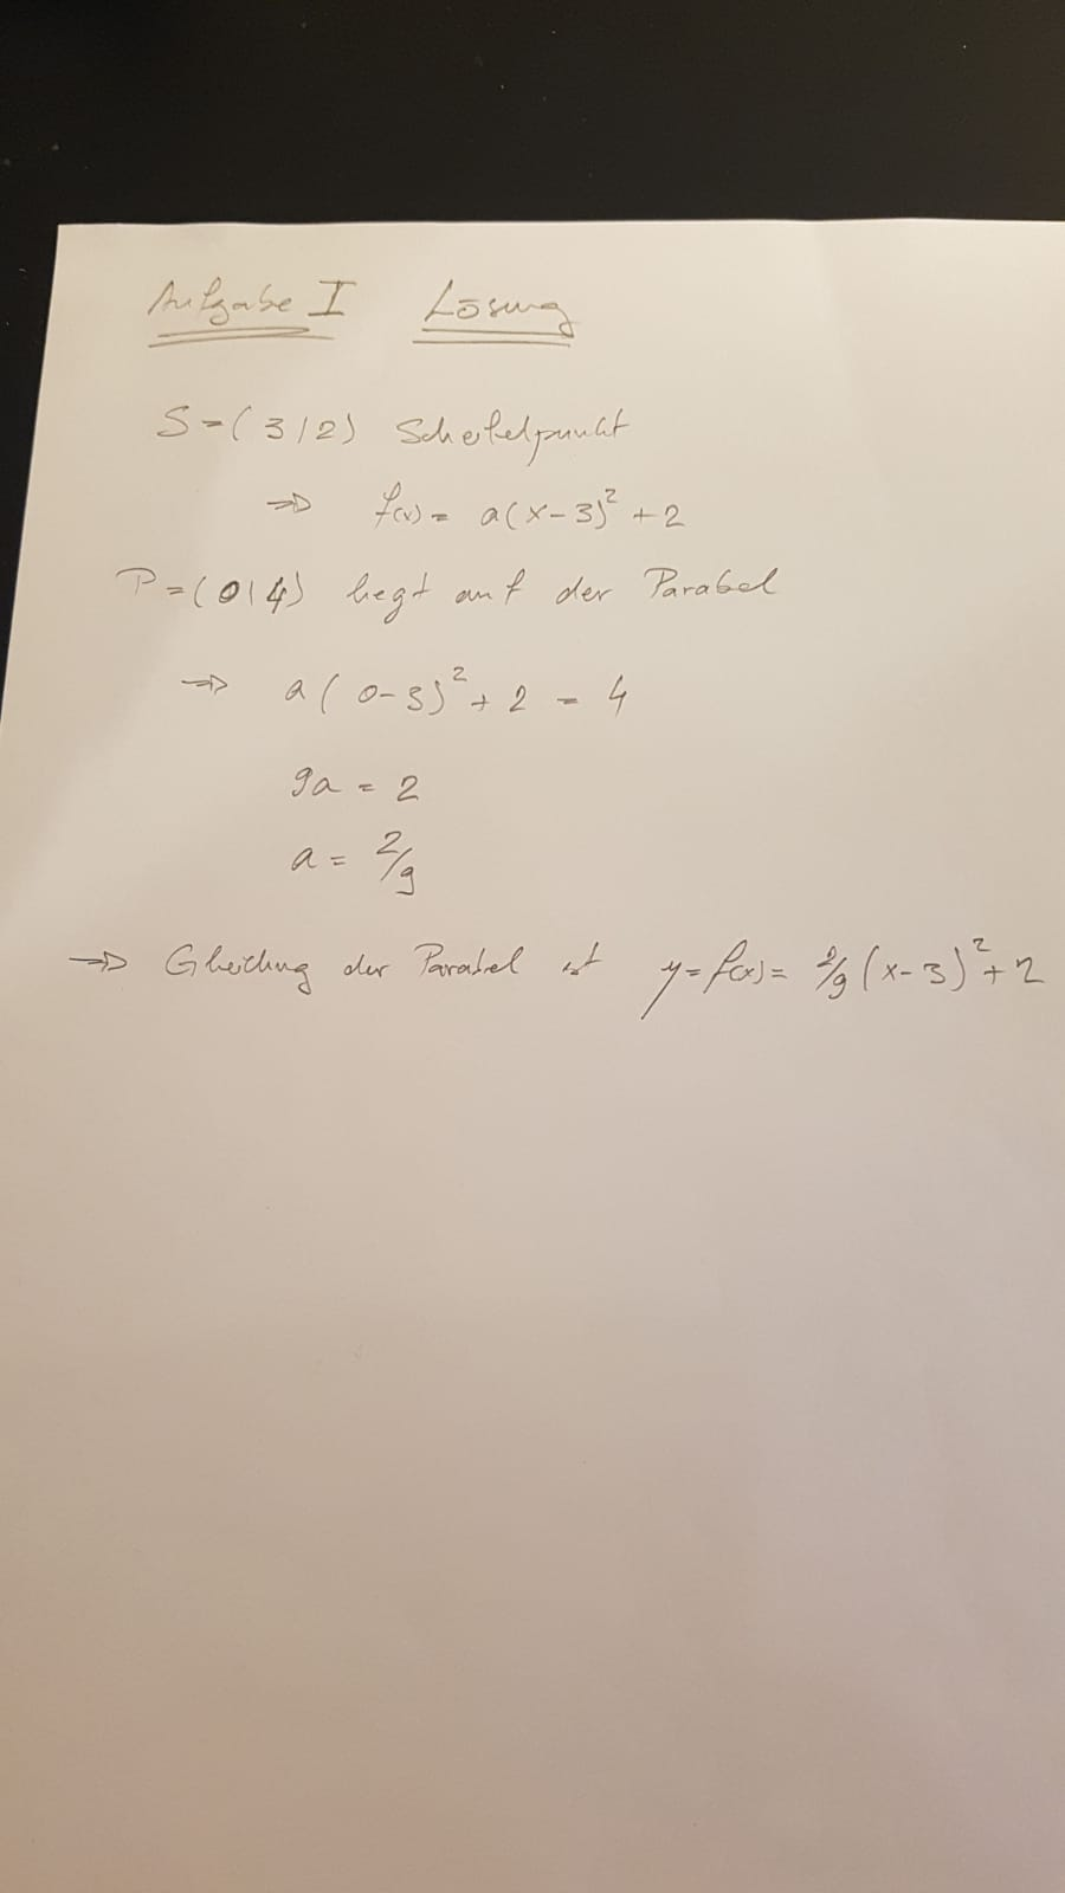 Aufgabe I Lösung
S=(3|2) Scheitelpunkt
⇒ f(x) = a(x-3)² + 2
P=(0|4) liegt auf der Parabel
⇒ a(0-3)² + 2 = 4
9a = 2
a = 2/9
⇒ Gleichung der Parabel ist y=f(x)= 2/9(x-3)²+2